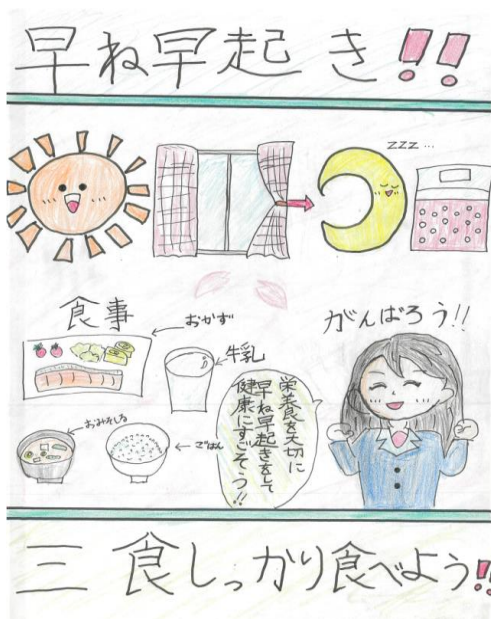 早ね早起き!!
zzz…
食事
おかず
牛乳
がんばろう!!
おみそしる
ごはん
栄養を大切に
早ね早起きをして
健康にすごそう!!
三食しっかり食べよう!!